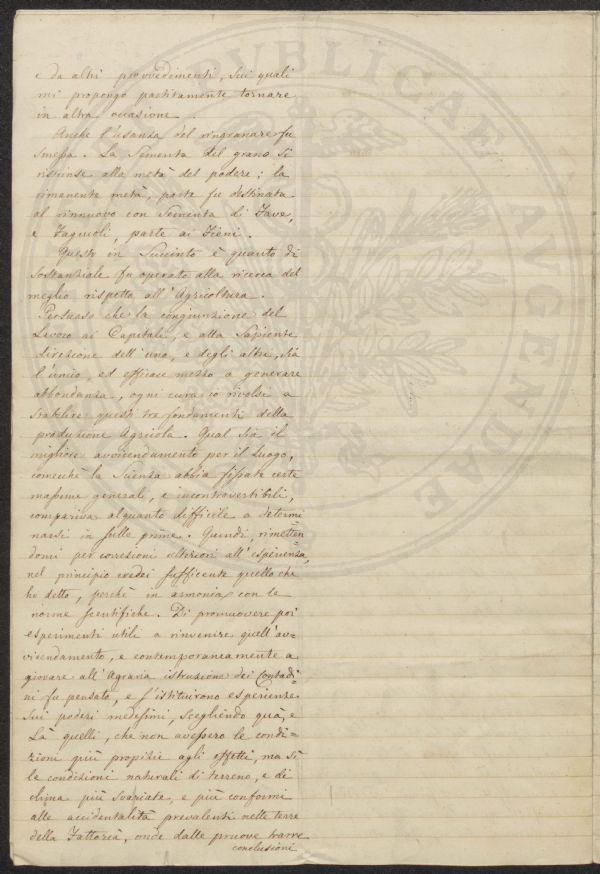 e da altri provvedimenti, sui quali
mi propongo partitamente tornare
in altra occasione.
Anche l'usanza del ringranare fu
smessa. La Sementa del grano si
ristrinse alla metà del podere; la
rimanente metà, parte fu destinata
al rinnuovo con Sementa di Fave,
e Fagiuoli, parte ai Fieni.
Questo in Succinto è quanto di
Sostanziale fu operato alla ricerca del
meglio rispetto all'Agricoltura.
Persuaso che la congiunzione del
Lavoro ai Capitali, e alla Sapiente
direzione dell'uno, e degli altri, sia
l'unico, ed efficace mezzo a generare
abbondanza, ogni cura io rivolsi a
Stabilire questi tre fondamenti della
produzione Agricola. Qual sia il
migliore avvicendamento per il Luogo,
comechè la Scienza abbia fissate certe
massime generali, e incontrovertibili,
compariva alquanto difficile a determi
narsi in sulle prime. Quindi, rimetten=
domi per correzioni ulteriori all'esperienza,
nel principio credei sufficente quello che
ho detto, perchè in armonia con le
norme scentifiche. Di promuovere poi
esperimenti utili a rinvenire quell'av=
vicendamento, e contemporaneamente a
giovare all'Agraria istruzione dei Contadi=
ni fu pensato, e s'istituirono esperienze
sui poderi medesimi, scegliendo quà, e
Là quelli, che non avessero le condi=
zioni più propizie agli effetti, ma sì
le condizioni naturali di terreno, e di
clima più svariate, e più conformi
alle accidentalità prevalenti nelle terre
della Fattoria, onde dalle pruove trarre
conclusioni
PUBLICAE
AUGENDAE